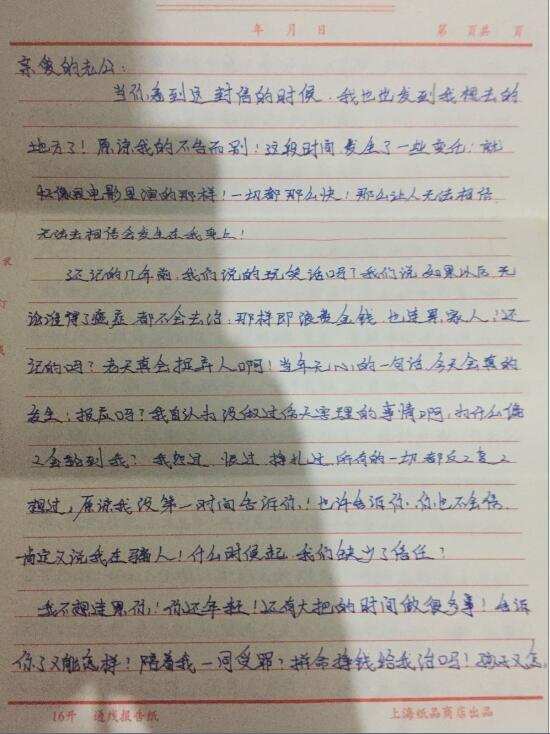 年 月 日 第 页共 页
亲爱的老公：
当你看到这封信的时候，我也出发到我想去的
地方了！原谅我的不告而别！这段时间发生了一些变化：就
好像跟电影里演的那样！一切都那么快！那么让人无法相信
无法去相信会发生在我身上！
还记的几年前，我们说的玩笑话吗？我们说如果以后，无
论谁得了癌症都不会去治，那样即浪费金钱，也连累家人！还
记的吗？老天真会捉弄人啊！当年无心的一句话今天会真的
发生；报应吗？我自认为没做过伤天害理的事情啊，为什么偏
又会轮到我？我怨过，恨过，挣扎过，所有的一切都反反复复
想过，原谅我没第一时间告诉你！也许告诉你，你也不会信，
肯定又说我在骗人！什么时候起，我们缺少了信任？
我不想连累你！你还年轻！还有大把的时间做很多事！告诉
你了又能怎样！陪着我一同受罪？拼命挣钱给我治吗？孩子又怎
16开 通线报告纸 上海纸品商店出品